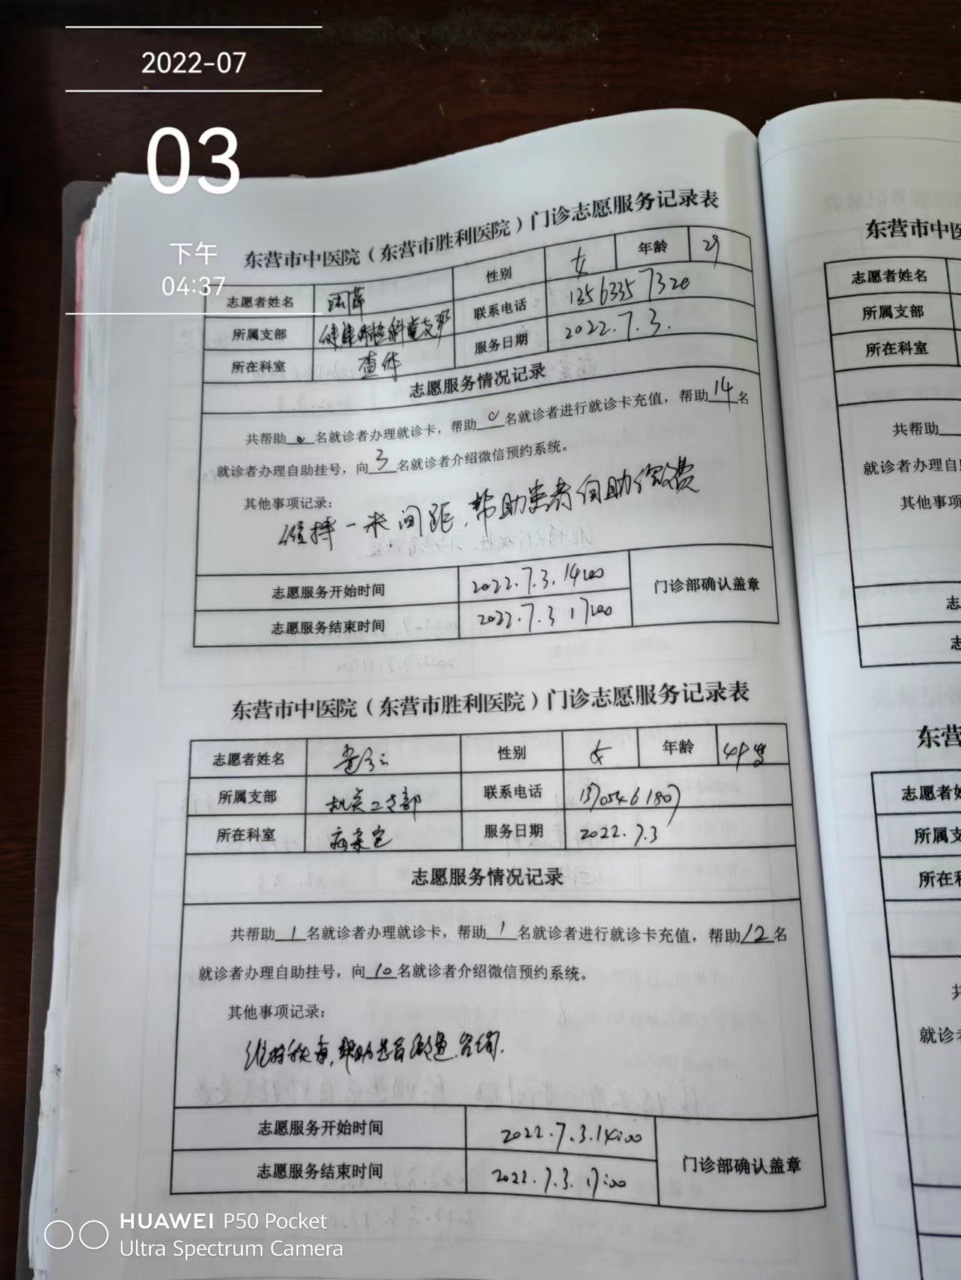 2022-07
03
下午
04:37
东营市中医院（东营市胜利医院）门诊志愿服务记录表
志愿者姓名 性别 女 年龄 29
所属支部 联系电话 13563357320
所在科室 查体 服务日期 2022.7.3.
志愿服务情况记录
共帮助 0 名就诊者办理就诊卡，帮助 0 名就诊者进行就诊卡充值，帮助 14 名
就诊者办理自助挂号，向 3 名就诊者介绍微信预约系统。
其他事项记录：
维持一米间距，帮助患者自助缴费
志愿服务开始时间 2022.7.3.14:00 门诊部确认盖章
志愿服务结束时间 2022.7.3 17:00
东营市中医院（东营市胜利医院）门诊志愿服务记录表
志愿者姓名 性别 女 年龄
所属支部 机关二支部 联系电话 13705461807
所在科室 病案室 服务日期 2022.7.3
志愿服务情况记录
共帮助 1 名就诊者办理就诊卡，帮助 1 名就诊者进行就诊卡充值，帮助 12 名
就诊者办理自助挂号，向 10 名就诊者介绍微信预约系统。
其他事项记录：
维持秩序，帮助患者
志愿服务开始时间 2022.7.3.14:00 门诊部确认盖章
志愿服务结束时间 2022.7.3.17:00
东营市中医
志愿者姓名
所属支部
所在科室
共帮助
就诊者办理自
其他事项
志
志
东营
志愿者姓
所属支
所在科
共
就诊者
其
HUAWEI P50 Pocket
Ultra Spectrum Camera